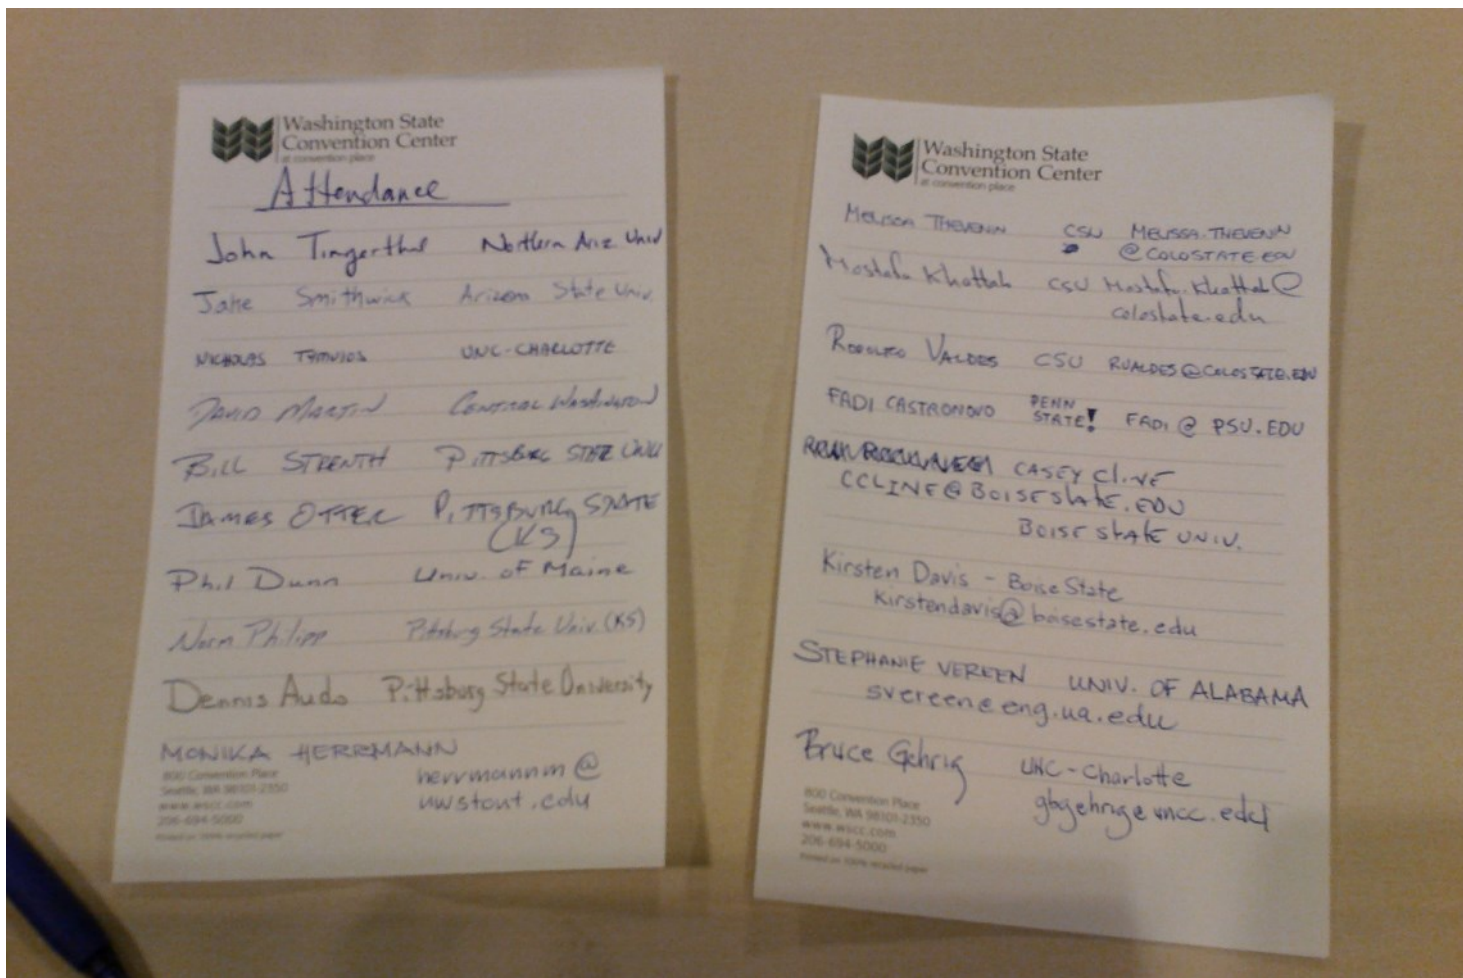 Washington State
Convention Center
at convention place
Attendance
John Tingerthal Northern Ariz. Univ
Jake Smithwick Arizona State Univ.
NICHOLAS TYMVIOS UNC-CHARLOTTE
DAVID MARTIN CENTRAL WASHINGTON
BILL STRENTH PITTSBURG STATE UNIV
JAMES OTTER PITTSBURG STATE
(KS)
Phil Dunn Univ. of Maine
Norm Philipp Pittsburg State Univ. (KS)
Dennis Audo Pittsburg State University
MONIKA HERRMANN
herrmannm@
uwstout.edu
800 Convention Place
Seattle, WA 98101-2350
www.wscc.com
206-694-5000
Printed on 100% recycled paper
Washington State
Convention Center
at convention place
MELISSA THEVENIN CSU MELISSA.THEVENIN
@COLOSTATE.EDU
Mostafa Khattab CSU Mostafa.Khattab@
colostate.edu
RODOLFO VALDES CSU RVALDES@COLOSTATE.EDU
FADI CASTRONOVO PENN
STATE! FADI@PSU.EDU
CASEY CLINE
CCLINE@BOISESTATE.EDU
BOISE STATE UNIV.
Kirsten Davis - Boise State
kirstendavis@boisestate.edu
STEPHANIE VEREEN UNIV. OF ALABAMA
svereen@eng.ua.edu
Bruce Gehrig UNC-Charlotte
gbgehrig@uncc.edu
800 Convention Place
Seattle, WA 98101-2350
www.wscc.com
206-694-5000
Printed on 100% recycled paper